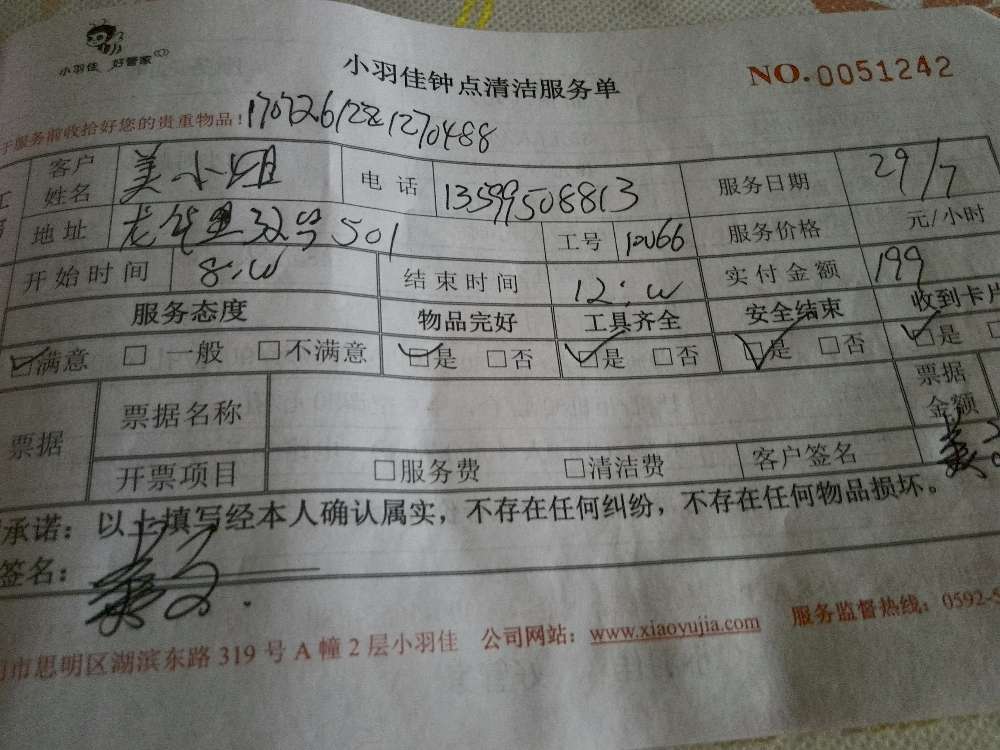 小羽佳 好管家
小羽佳钟点清洁服务单
NO.0051242
于服务前收拾好您的贵重物品!
客户姓名 美小姐 电话 13599508813 服务日期 29/7
地址 501 工号 10066 服务价格 元/小时
开始时间 结束时间 实付金额 199
服务态度 物品完好 工具齐全 安全结束 收到卡片
☑满意 □一般 □不满意 ☑是 □否 ☑是 □否 ☑是 □否 ☑是
票据 票据名称 票据金额
开票项目 □服务费 □清洁费 客户签名
承诺：以上填写经本人确认属实，不存在任何纠纷，不存在任何物品损坏。
签名：
市思明区湖滨东路319号A幢2层小羽佳 公司网站：www.xiaoyujia.com 服务监督热线：0592-5